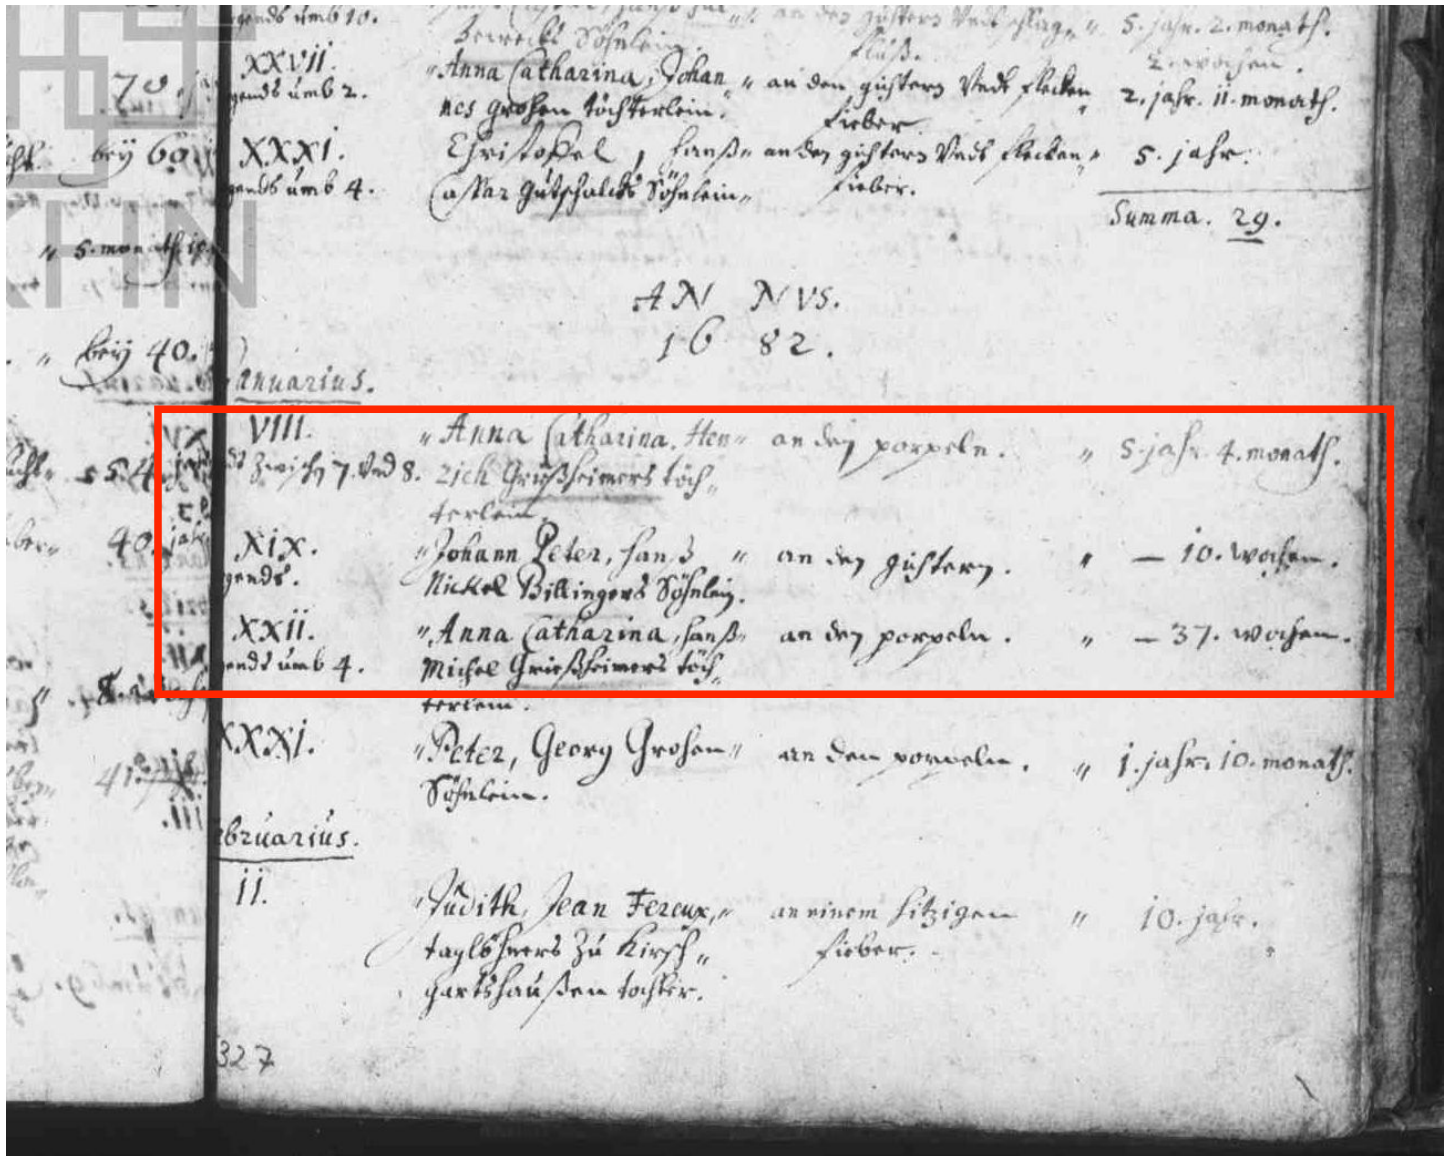 gends umb 10.
Söhnlein.
fluß.
5. jahr. 2. monath.
2. wochen.
XXVII.
gends umb 2.
"Anna Catharina, Johan"
nes Grohen töchterlein.
an den gichtern Undt flecken
fieber.
2. jahr. 11. monath.
XXXI.
gends umb 4.
Christoffel, Hanß
Caspar Gutschalcks Söhnlein"
an den gichtern Undt flecken"
fieber.
5. jahr.
Summa. 29.
70.
bey 60.
" 5. monath
" bey 40.
KHN
ANNVS.
1682.
anuarius.
VIII.
Zwisch 7. Und 8.
"Anna Catharina, Hen"
rich Grießheimers töch"
terlein.
an den porpeln.
" 5. jahr. 4. monath.
XIX.
gends.
"Johann Peter, Hanß "
Nickel Billingers Söhnlein.
an den gichtern.
" — 10. wochen.
XXII.
gends umb 4.
"Anna Catharina, Hanß"
Michel Grießheimers töch"
terlein.
an den porpeln.
" — 37. wochen.
XXXI.
"Peter, Georg Grohen"
Söhnlein.
an den porpeln.
" 1. jahr. 10. monath.
40. jahr
41.
ebruarius.
II.
"Judith, Jean Fereux,"
taglöhners Zu Kirsch"
gartshaußen tochter.
an einem hitzigen
fieber.
" 10. jahr.
327